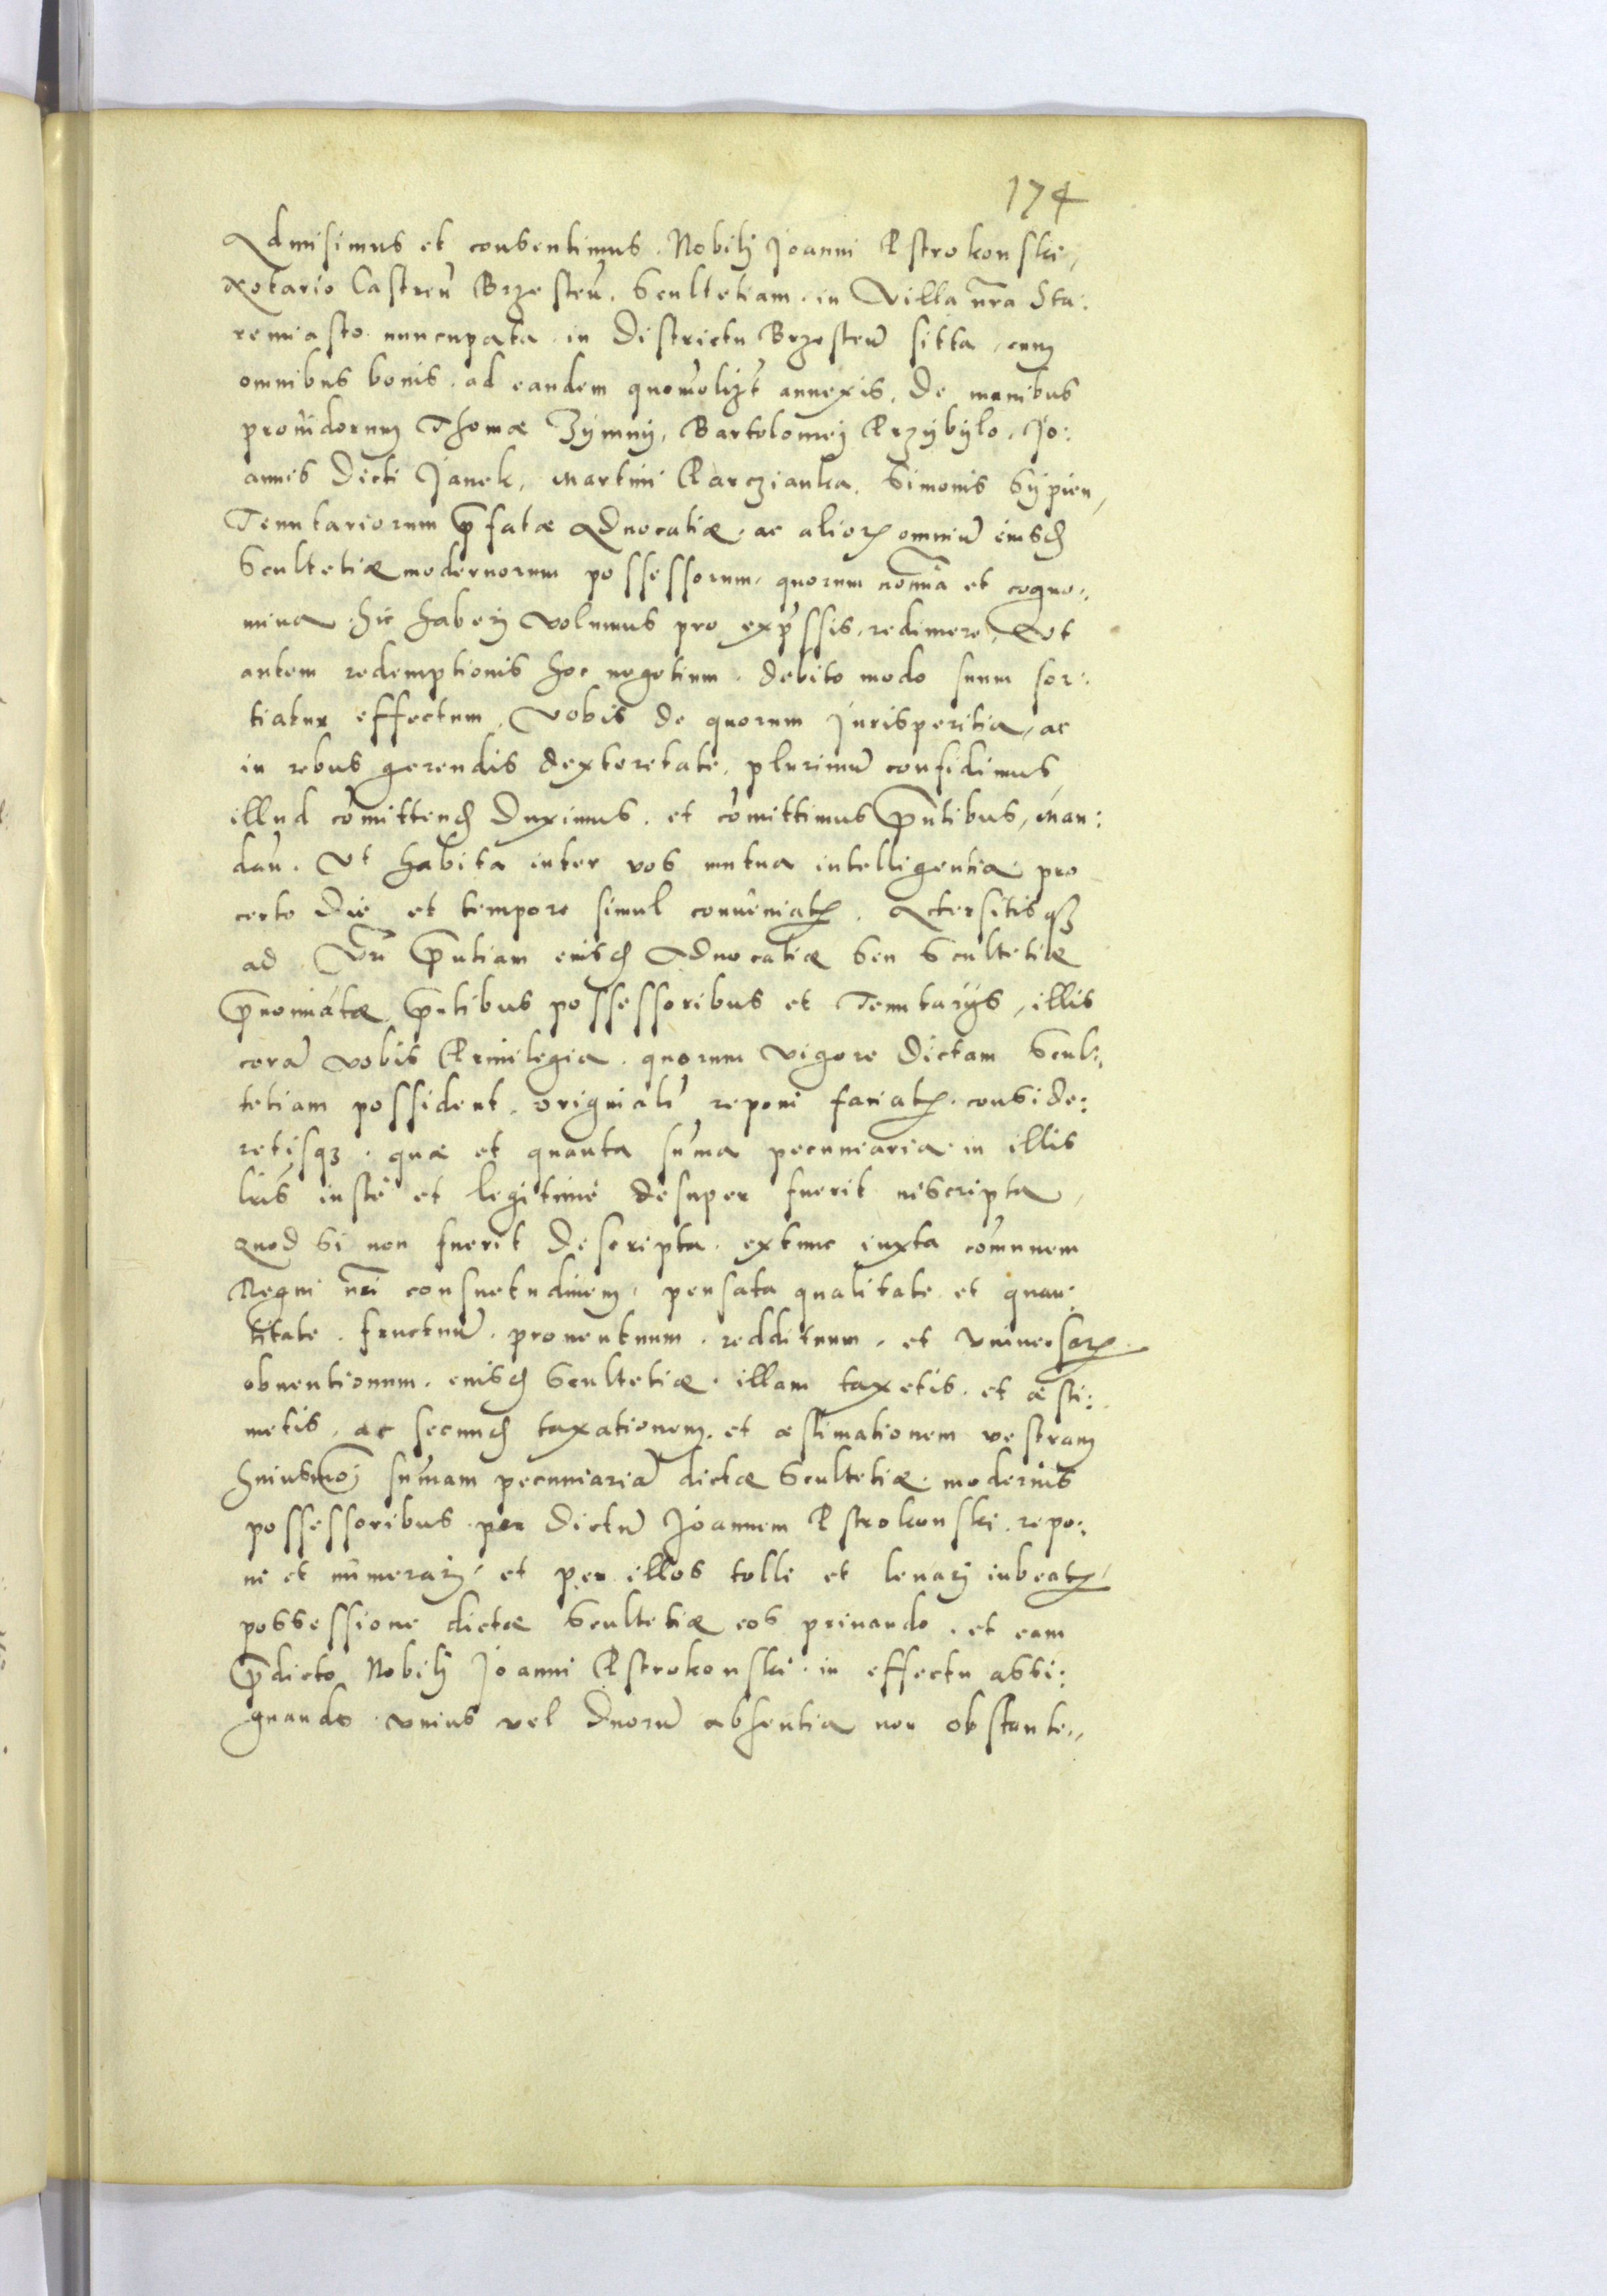 174
Admisimus et consentimus. Nobilj Joanni Pstrokonski,
Notario Castren̄ Brzesten̄. Scultetiam. in Villa nr̄a Sta:
remiasto nuncupata. in Districtu Brzesten̄ sitta, cum
omnibus bonis. ad eandem quomolizt̄ annexis, De manibus
prouidorum Thomæ Zymny, Bartolomej Przybylo, Jo:
annis Dicti Janek, Martini Parczianka. Simonis Sypien,
Tenutariorum p̄fatæ Aduocatiæ. ac alioꝝ omniū eiusd̄
Scultetiæ modernorum possessorum, quorum noīna et cogno:
mina. hic haberj volumus pro exp̄ssis, redimere, Vt
autem redemptionis hoc negotium. debito modo suum sor:
tiatur effectum, Vobis de quorum Jurisperitia, ac
in rebus gerendis dexteretate, plurimū confidimus,
illud cōmittend̄ Duximus. et cōmittimus p̄ntibus, Man:
dan̄. Vt habita inter vos mutua intelligentia, pro
certo Die et tempore simul conueniatꝭ. Acersitisqꝫ
ad Vr̄ p̄ntiam eiusd̄ Aduocatiæ Seu Scultetiæ
p̄noīnatæ p̄ntibus possessoribus et Tenutarijs, illis
corā vobis Priuilegia. quorum vigore Dictam Scul:
tetiam possident. originalr̄ reponi faciatꝭ. conside:
retisqꝫ. quæ et quanta sūma pecuniaria in illis
lrīs iustè et legitimè desuper fuerit inscripta,
Quod Si non fuerit Descripta. extunc iuxta cōmunem
Regni nr̄i consuetudinem, pensata qualitate et quan:
titate. fructuū. prouentuum. reddituum. et Vniuersoꝝ
obuentionum. eiusd̄ Scultetiæ. illam taxetis. et æsti:
metis, ac secund̄ taxationem. et æstimationem vestram
huiusmōj sūmam pecuniariā dictæ Scultetiæ modernis
possessoribus per Dictū Joannem Pstrokonski. repo:
ni et numerarj, et per illos tolli et leuarj iubeatꝭ,
possessione dictæ Scultetiæ eos priuando. et eam
p̄dicto Nobilj Joanni Pstrokonski in effectu assi:
gnando vnius vel Duorū absentia non obstante.,